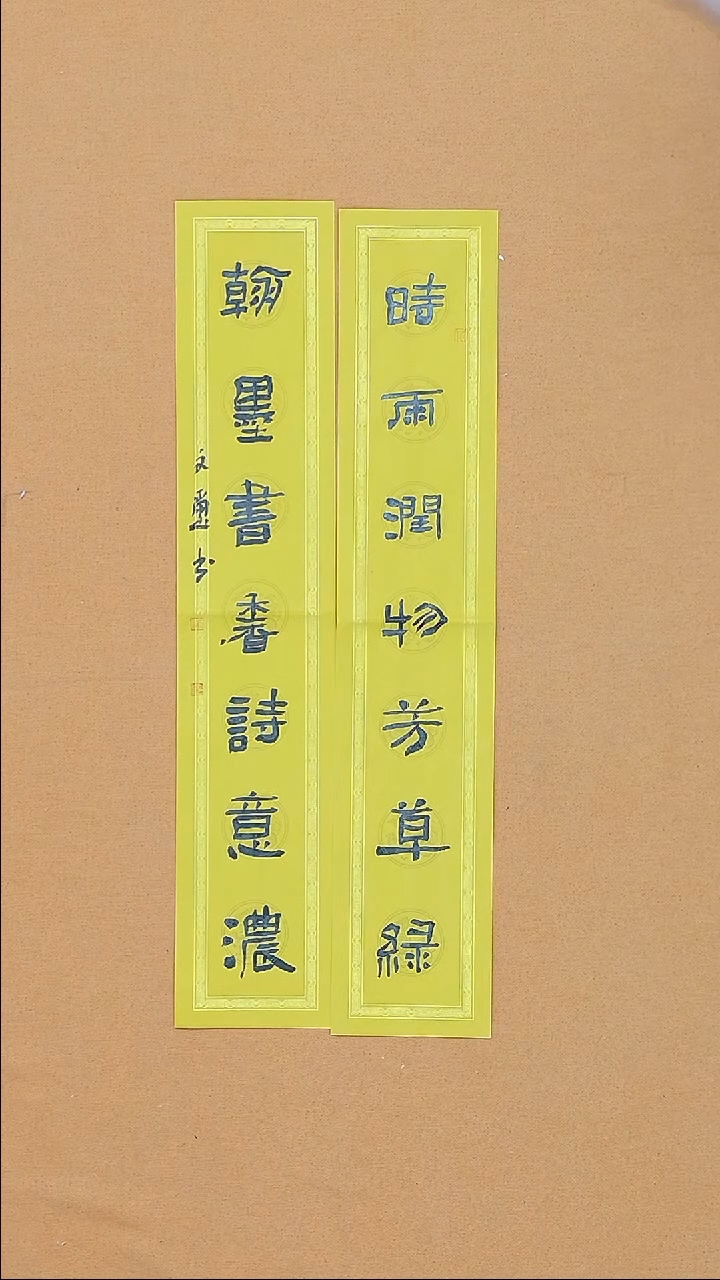 時雨潤物芳草緑
翰墨書香詩意濃
文
书